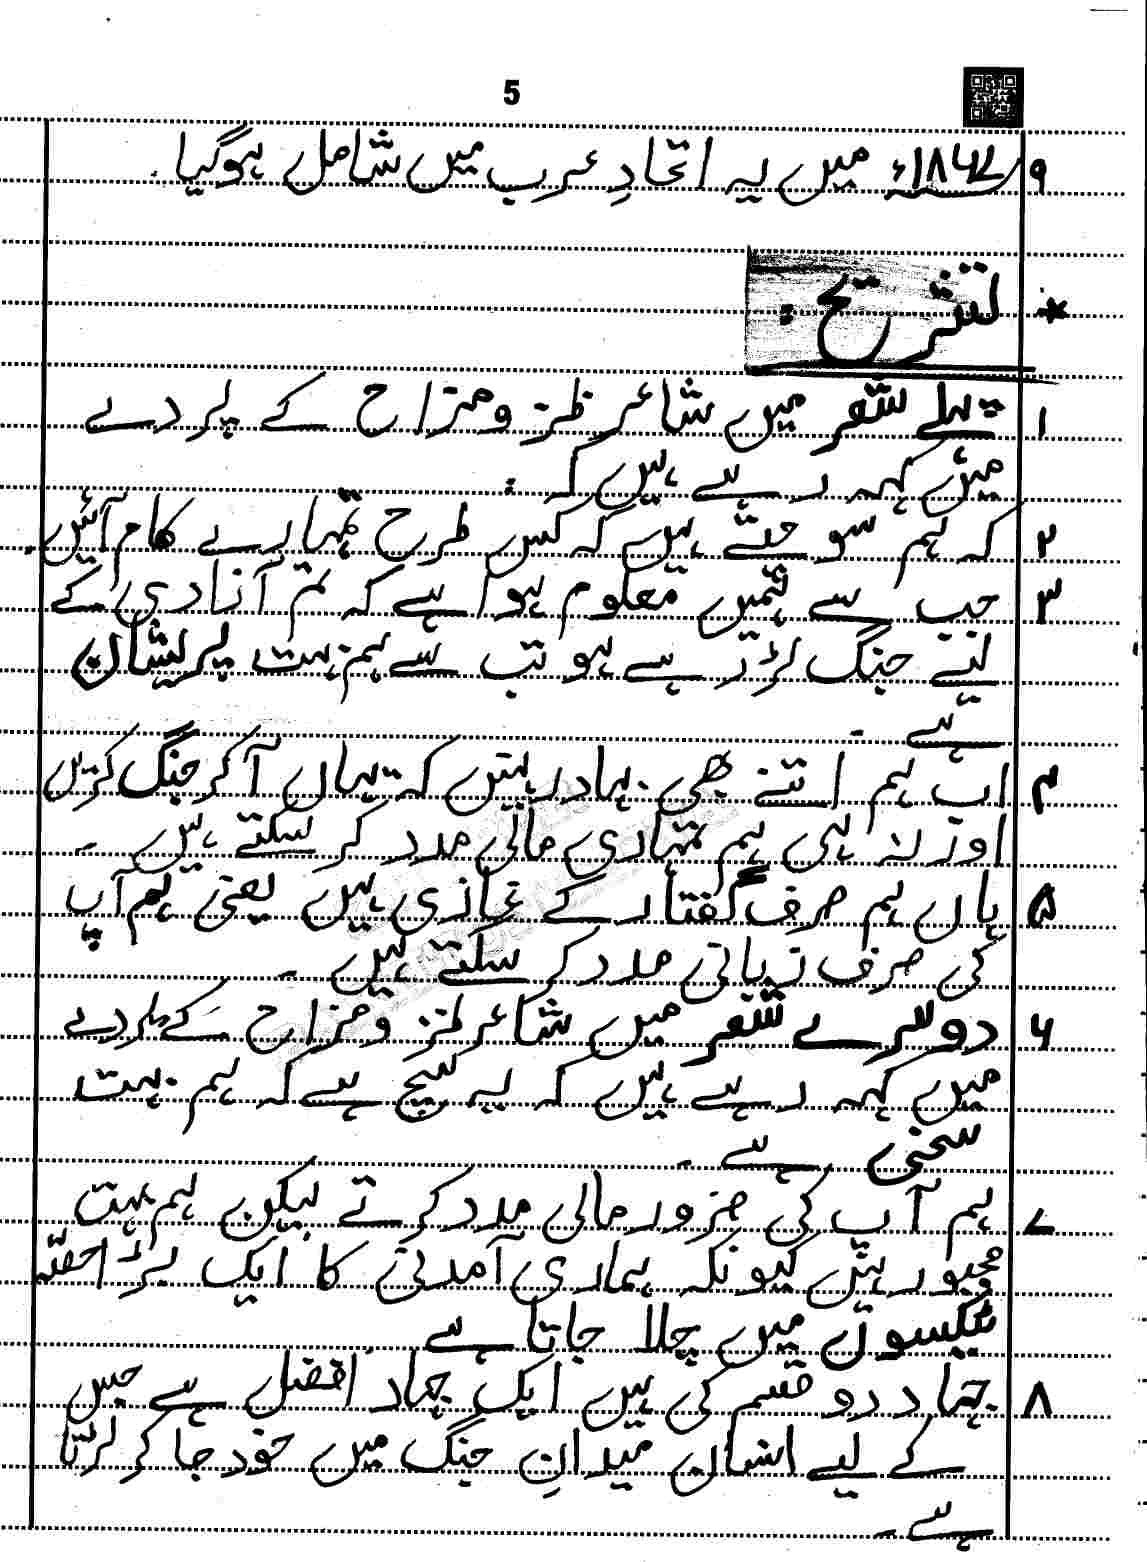 5
۹ ۱۸۶۷ء میں یہ اتحادِ عرب میں شامل ہوگیا۔
* تشریح :
۱ پہلے شعر میں شاعر طنز و مزاح کے پردے
میں کہہ رہے ہیں کہ :
۲ کہ ہم سوچتے ہیں کہ کس طرح تمہارے کام آئیں۔
۳ جب سے ہمیں معلوم ہوا ہے کہ تم آزادی کے
لئے جنگ لڑ رہے ہو تب سے ہم بہت پریشان
ہے ۔
۴ اب ہم اتنے بھی بہادر نہیں کہ یہاں آکر جنگ کریں
اور نہ ہی ہم تمہاری مالی مدد کر سکتے ہیں ۔
۵ ہاں ہم صرف گفتار کے غازی ہیں یعنی ہم آپ
کی صرف زبانی مدد کر سکتے ہیں ۔
۶ دوسرے شعر میں شاعر طنز و مزاح کے پردے
میں کہہ رہے ہیں کہ یہ سچ ہے کہ ہم بہت
سخی ہے ۔
۷ ہم آپ کی ضرور مالی مدد کرتے لیکن ہم بہت
مجبور ہیں کیونکہ ہماری آمدنی کا ایک بڑا حصّہ
ٹیکسوں میں چلا جاتا ہے
۸ جہاد دو قسم کی ہیں ایک جہاد افضل ہے جس
کے لیے انسان میدانِ جنگ میں خود جا کر لڑتا
ہے ۔